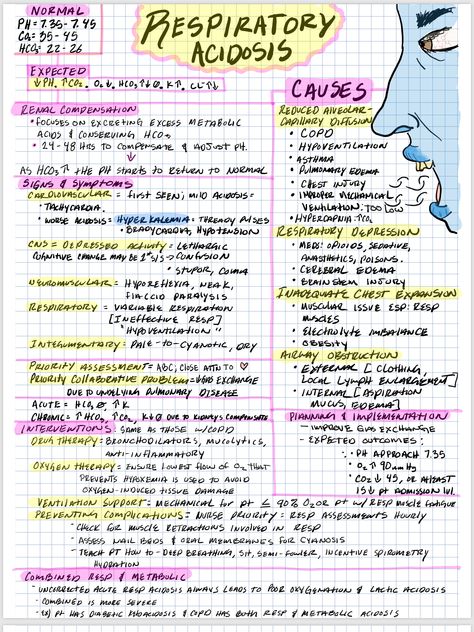 NORMAL
PH = 7.35 - 7.45
CO₂ = 35 - 45
HCO₃ = 22 - 26
RESPIRATORY
ACIDOSIS
EXPECTED
↓PH, ↑CO₂, O₂↓, HCO₃↑↓∅, K↑, CL⁻↑↓
RENAL COMPENSATION
• FOCUSES ON EXCRETING EXCESS METABOLIC
ACIDS & CONSERVING HCO₃
• 24-48 HRS TO COMPENSATE & ADJUST PH.
AS HCO₃↑ THE PH STARTS TO RETURN TO NORMAL
SIGNS & SYMPTOMS
CARDIOVASCULAR = FIRST SEEN; MILD ACIDOSIS =
TACHYCARDIA.
• WORSE ACIDOSIS = HYPERKALEMIA = THREADY PULSES
• BRADYCARDIA, HYPOTENSION
CNS = DEPRESSED ACTIVITY = LETHARGIC
COGNITIVE CHANGE MAY BE 1ST S/S → CONFUSION
• STUPOR, COMA
NEUROMUSCULAR = HYPOREFLEXIA, WEAK,
FLACCID PARALYSIS
RESPIRATORY = VARIABLE RESPIRATION
[INEFFECTIVE RESP]
HYPOVENTILATION
INTEGUMENTARY = PALE-TO-CYANOTIC, DRY
PRIORITY ASSESSMENT = ABC; CLOSE ATTN TO ♡
PRIORITY COLLABORATIVE PROBLEM = ↓GAS EXCHANGE
DUE TO UNDERLYING PULMONARY DISEASE
ACUTE = HCO₃ ∅, ↑K
CHRONIC = ↑HCO₃, ↑CO₂, K↓∅ DUE TO KIDNEYS COMPENSATE
CAUSES
REDUCED ALVEOLAR-
CAPILLARY DIFFUSION
• COPD
• HYPOVENTILATION
• ASTHMA
• PULMONARY EDEMA
• CHEST INJURY
• IMPROPER MECHANICAL
VENTILATION: TOO LOW
• HYPERCAPNIA ↑CO₂
RESPIRATORY DEPRESSION
• MEDS: OPIOIDS, SEDATIVE,
ANASTHETICS, POISONS.
• CEREBRAL EDEMA
• BRAIN STEM INJURY
INADEQUATE CHEST EXPANSION
• MUSCULAR ISSUE ESP: RESP
MUSCLES
• ELECTROLYTE IMBALANCE
• OBESITY
AIRWAY OBSTRUCTION
• EXTERNAL [CLOTHING,
LOCAL LYMPH ENLARGEMENT]
• INTERNAL [ASPIRATION
MUCUS, EDEMA]
PLANNING & IMPLEMENTATION
- IMPROVE GAS EXCHANGE
- EXPECTED OUTCOMES:
• PH APPROACH 7.35
• O₂ ↑ 90 mmHg
• CO₂ ↓ 45, OR ATLEAST
15 ↓ PT ADMISSION LVL.
INTERVENTIONS: SAME AS THOSE W/COPD
DRUG THERAPY = BRONCHODILATORS, MUCOLYTICS,
ANTI-INFLAMMATORY
OXYGEN THERAPY = ENSURE LOWEST FLOW OF O₂ THAT
PREVENTS HYPOXEMIA IS USED TO AVOID
OXYGEN-INDUCED TISSUE DAMAGE
VENTILATION SUPPORT = MECHANICAL FOR PT ≤ 90% O₂ OR PT W/ RESP MUSCLE FATIGUE
PREVENTING COMPLICATIONS = NURSE PRIORITY = RESP ASSESSMENTS HOURLY
- CHECK FOR MUSCLE RETRACTIONS INVOLVED IN RESP
- ASSESS NAIL BEDS & ORAL MEMBRANES FOR CYANOSIS
- TEACH PT HOW TO - DEEP BREATHING, SIT, SEMI-FOWLER, INCENTIVE SPIROMETRY
HYDRATION
COMBINED RESP & METABOLIC
- UNCORRECTED ACUTE RESP ACIDOSIS ALWAYS LEADS TO POOR OXYGENATION & LACTIC ACIDOSIS
- COMBINED IS MORE SEVERE
- EX) PT HAS DIABETIC KETOACIDOSIS & COPD HAS BOTH RESP & METABOLIC ACIDOSIS